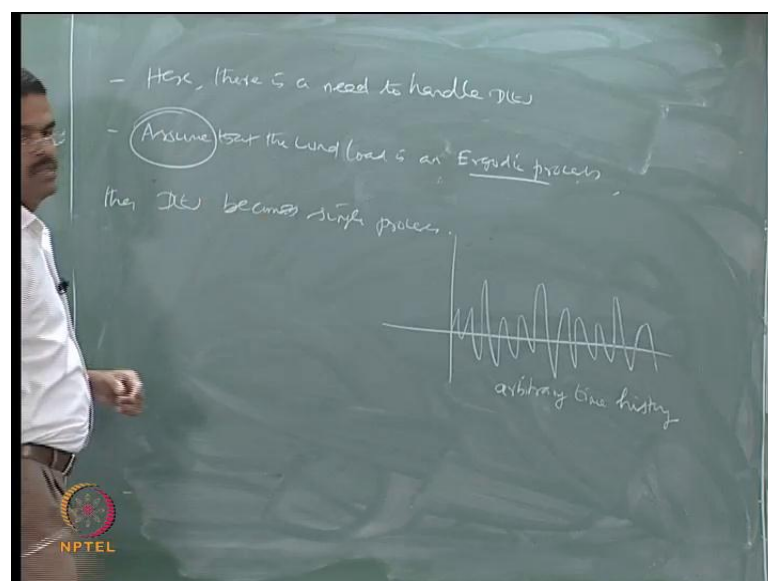 - Here, there is a need to handle
- Assume that the wind load is an Ergodic process,
then becomes single process.
arbitrary time history
NPTEL